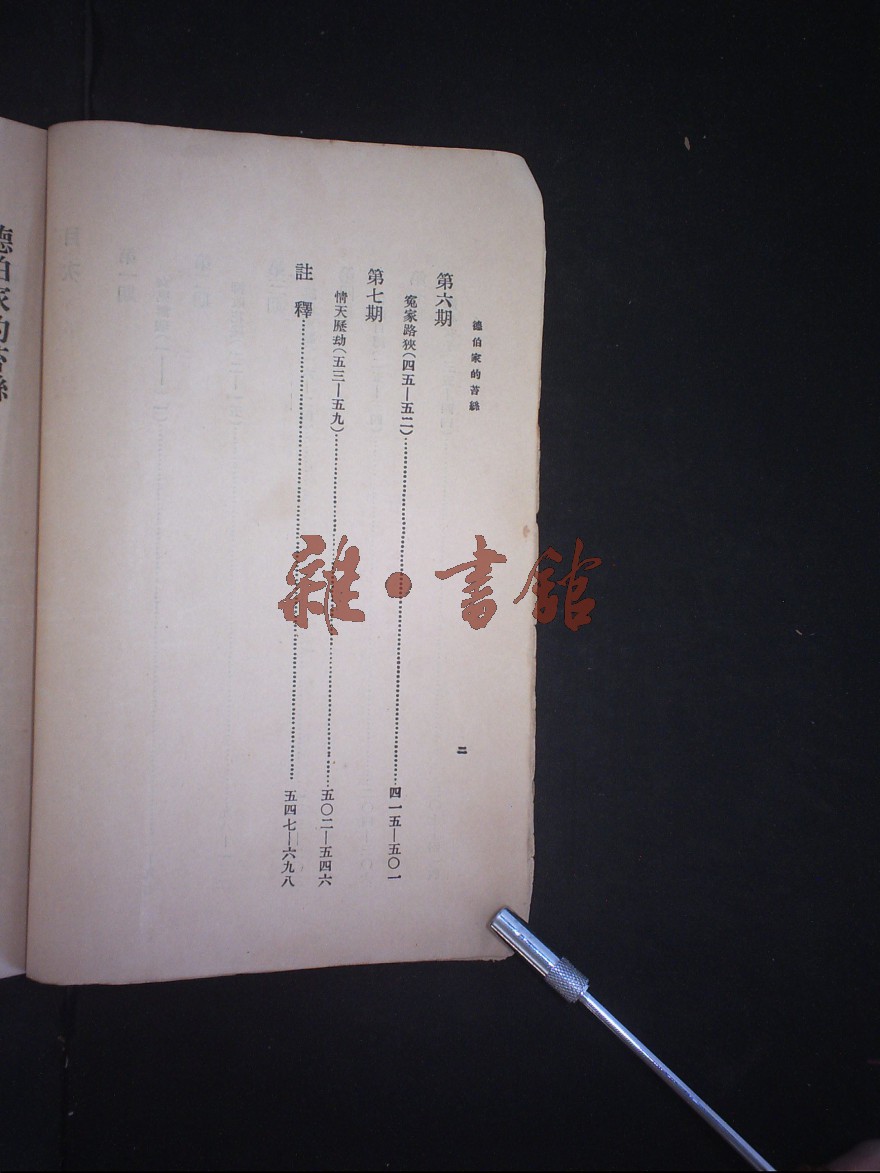 德伯家的苔絲
二
第六期
寃家路狹(四五—五二)…四一五—五〇一
第七期
情天歷劫(五三—五九)…五〇二—五四六
註釋…五四七—六九八
德伯家的苔絲
雜·書館